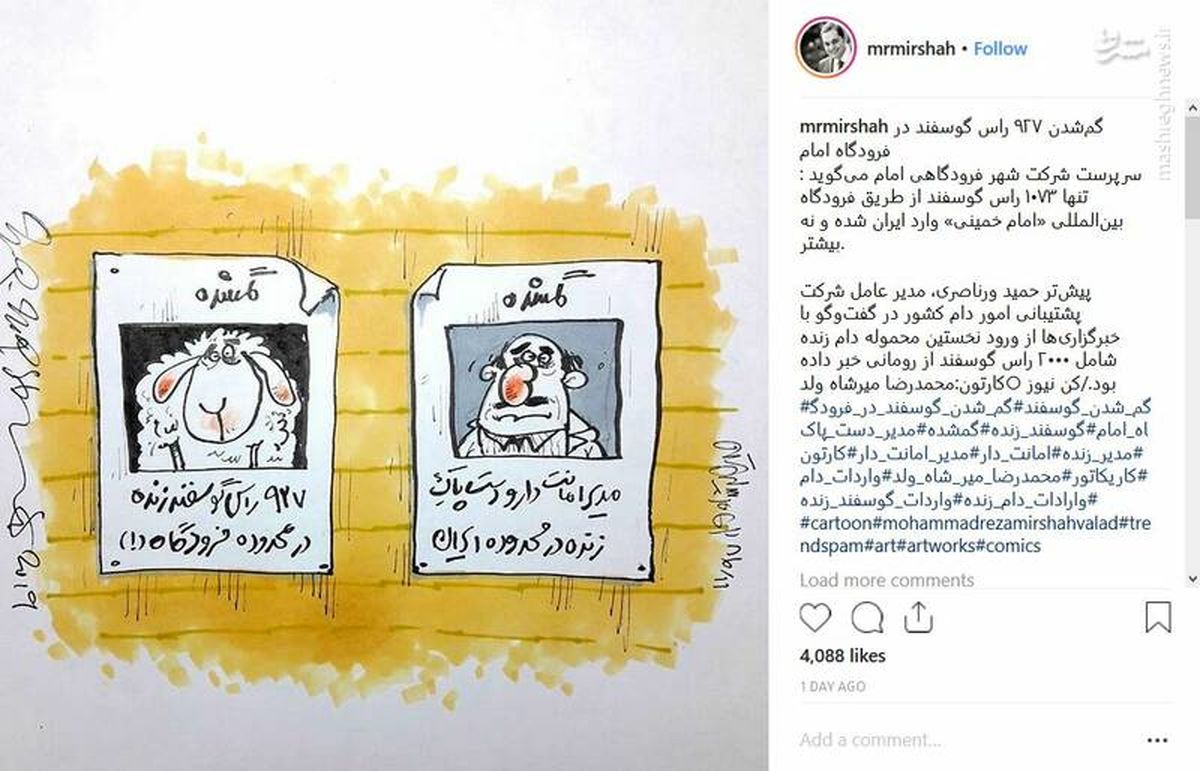 گمشده
۹۲۷ راس گوسفند زنده
در محدوده فرودگاه (!)
گمشده
مدیر امانت دار و دست پاک
زنده در محدوده ایران
2019
mrmirshah • Follow
مشرق
mashreghnews.ir
mrmirshah گم‌شدن ۹۲۷ راس گوسفند در
فرودگاه امام
سرپرست شرکت شهر فرودگاهی امام می‌گوید :
تنها ۱۰۷۳ راس گوسفند از طریق فرودگاه
بین‌المللی «امام خمینی» وارد ایران شده و نه
بیشتر.
پیش‌تر حمید ورناصری، مدیر عامل شرکت
پشتیبانی امور دام کشور در گفت‌وگو با
خبرگزاری‌ها از ورود نخستین محموله دام زنده
شامل ۲۰۰۰ راس گوسفند از رومانی خبر داده
بود./کن نیوز ○کارتون:محمدرضا میرشاه ولد
#گم_شدن_گوسفند#گم_شدن_گوسفند_در_فرودگ
اه_امام#گوسفند_زنده#گمشده#مدیر_دست_پاک
#مدیر_زنده#امانت_دار#مدیر_امانت_دار#کارتون
#کاریکاتور#محمدرضا_میر_شاه_ولد#واردات_دام
#وارادات_دام_زنده#واردات_گوسفند_زنده
#cartoon#mohammadrezamirshahvalad#tre
ndspam#art#artworks#comics
Load more comments
4,088 likes
1 DAY AGO
Add a comment...